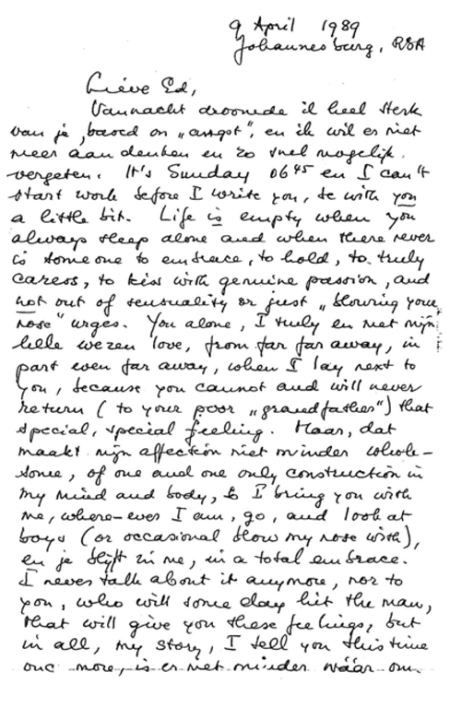 9 April 1989
Johannesburg, RSA
Lieve Ed,
Vannacht droomde ik heel sterk
van je, based on „angst", en ik wil er niet
meer aan denken en zo snel mogelijk
vergeten. It's Sunday 06⁴⁵ en I can't
start work before I write you, be with you
a little bit. Life is empty when you
always sleep alone and when there never
is someone to embrace, to hold, to truly
caress, to kiss with genuine passion, and
not out of sensuality or just „blowing your
nose" urges. You alone, I truly en met mijn
hele wezen love, from far far away, in
part even far away, when I lay next to
you, because you cannot and will never
return (to your poor „grandfather") that
special, special feeling. Maar, dat
maakt mijn affection niet minder whole-
some, of one and one only construction in
my mind and body, & I bring you with
me, where-ever I am, go, and look at
boys (or occasional blow my nose with),
en je blijft in me, in a total embrace.
I never talk about it anymore, nor to
you, who will some day hit the man,
that will give you these feelings, but
in all, my story, I tell you this time
once more, is er niet minder wáár om.